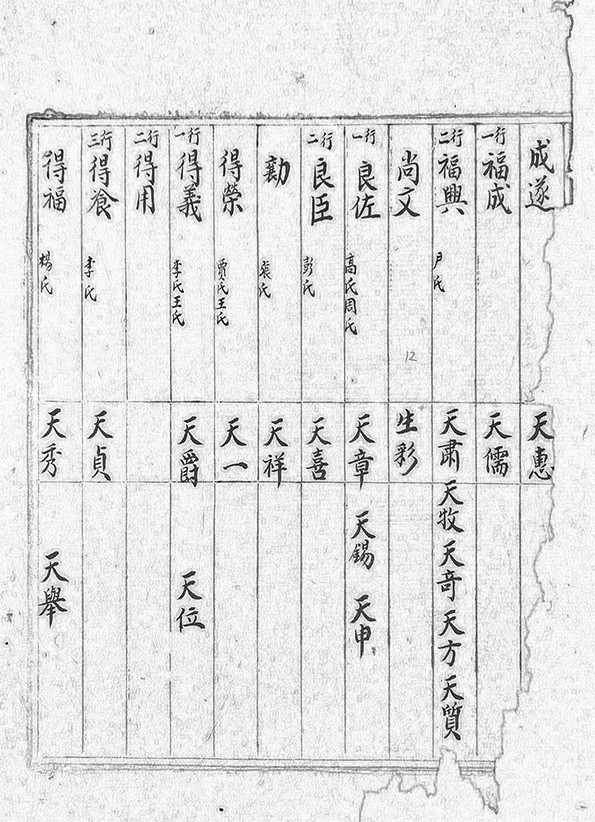 成遂 天惠
一行 福成 天儒
二行 福興 尸氏 天肅 天牧 天竒 天方 天質
尚文 12 生彩
一行 良佐 高氏周氏 天章 天錫 天申
二行 良臣 彭氏 天喜
勷 袁氏 天祥
得榮 賈氏王氏 天一
一行 得義 李氏王氏 天爵 天位
二行 得用
三行 得飡 李氏 天貞
得福 楊氏 天秀 天舉